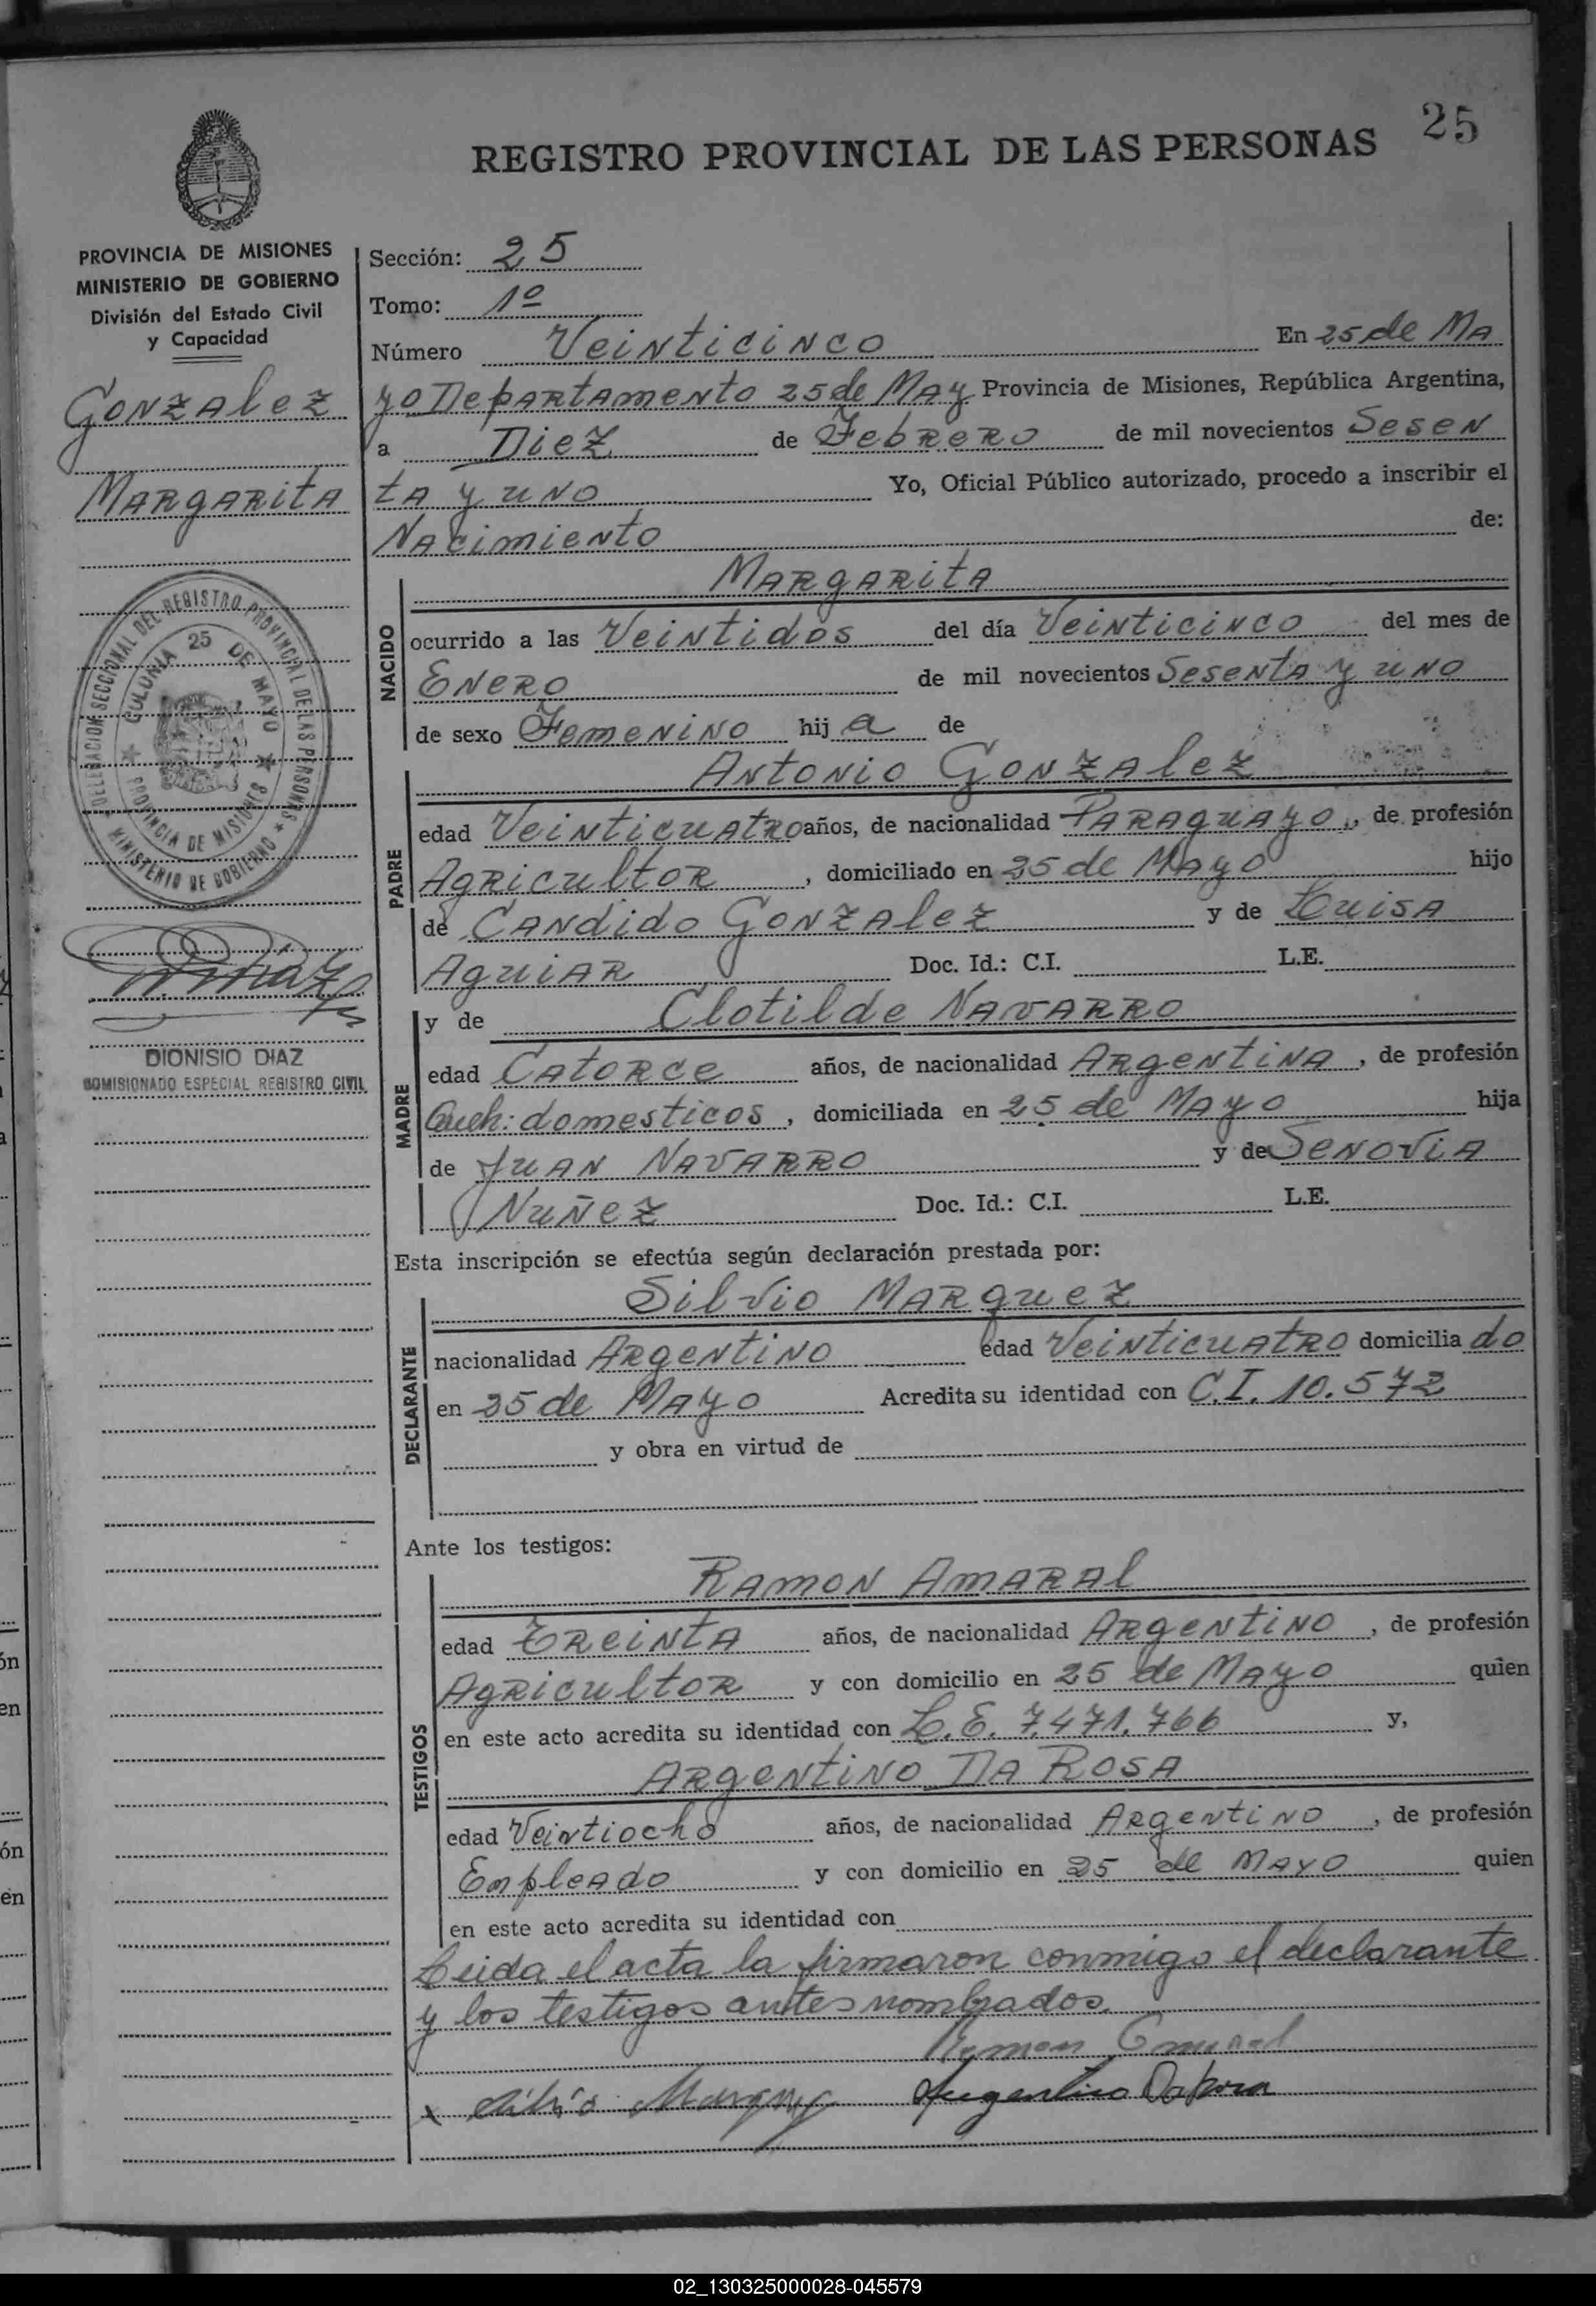 25
REGISTRO PROVINCIAL DE LAS PERSONAS
PROVINCIA DE MISIONES
MINISTERIO DE GOBIERNO
División del Estado Civil
y Capacidad
Gonzalez
Margarita
DELEGACION SECCIONAL DEL REGISTRO PROVINCIAL DE LAS PERSONAS
COLONIA 25 DE MAYO
PROVINCIA DE MISIONES
MINISTERIO DE GOBIERNO
DIONISIO DIAZ
COMISIONADO ESPECIAL REGISTRO CIVIL
Sección: 25
Tomo: 1º
Número Veinticinco En 25 de Ma
yo Departamento 25 de May Provincia de Misiones, República Argentina,
a Diez de Febrero de mil novecientos Sesen
ta y uno Yo, Oficial Público autorizado, procedo a inscribir el
Nacimiento de:
NACIDO
Margarita
ocurrido a las Veintidos del día Veinticinco del mes de
Enero de mil novecientos Sesenta y uno
de sexo Femenino hij a de
PADRE
Antonio Gonzalez
edad Veinticuatro años, de nacionalidad Paraguayo, de profesión
Agricultor, domiciliado en 25 de Mayo hijo
de Candido Gonzalez y de Luisa
Aguiar Doc. Id.: C.I. L.E.
MADRE
y de Clotilde Navarro
edad Catorce años, de nacionalidad Argentina, de profesión
Queh: domesticos, domiciliada en 25 de Mayo hija
de Juan Navarro y de Senovia
Nuñez Doc. Id.: C.I. L.E.
Esta inscripción se efectúa según declaración prestada por:
DECLARANTE
Silvio Marquez
nacionalidad Argentino edad Veinticuatro domicilia do
en 25 de Mayo Acredita su identidad con C.I. 10.572
y obra en virtud de
Ante los testigos:
TESTIGOS
Ramon Amaral
edad Treinta años, de nacionalidad Argentino, de profesión
Agricultor y con domicilio en 25 de Mayo quien
en este acto acredita su identidad con L.E. 7.471.766 y,
Argentino Da Rosa
edad Veintiocho años, de nacionalidad Argentino, de profesión
Empleado y con domicilio en 25 de Mayo quien
en este acto acredita su identidad con
Leida el acta la firmaron conmigo el declarante
y los testigos antes nombrados.
Ramon Amaral
x Silvio Marquez Argentino Da Rosa
02_130325000028-045579